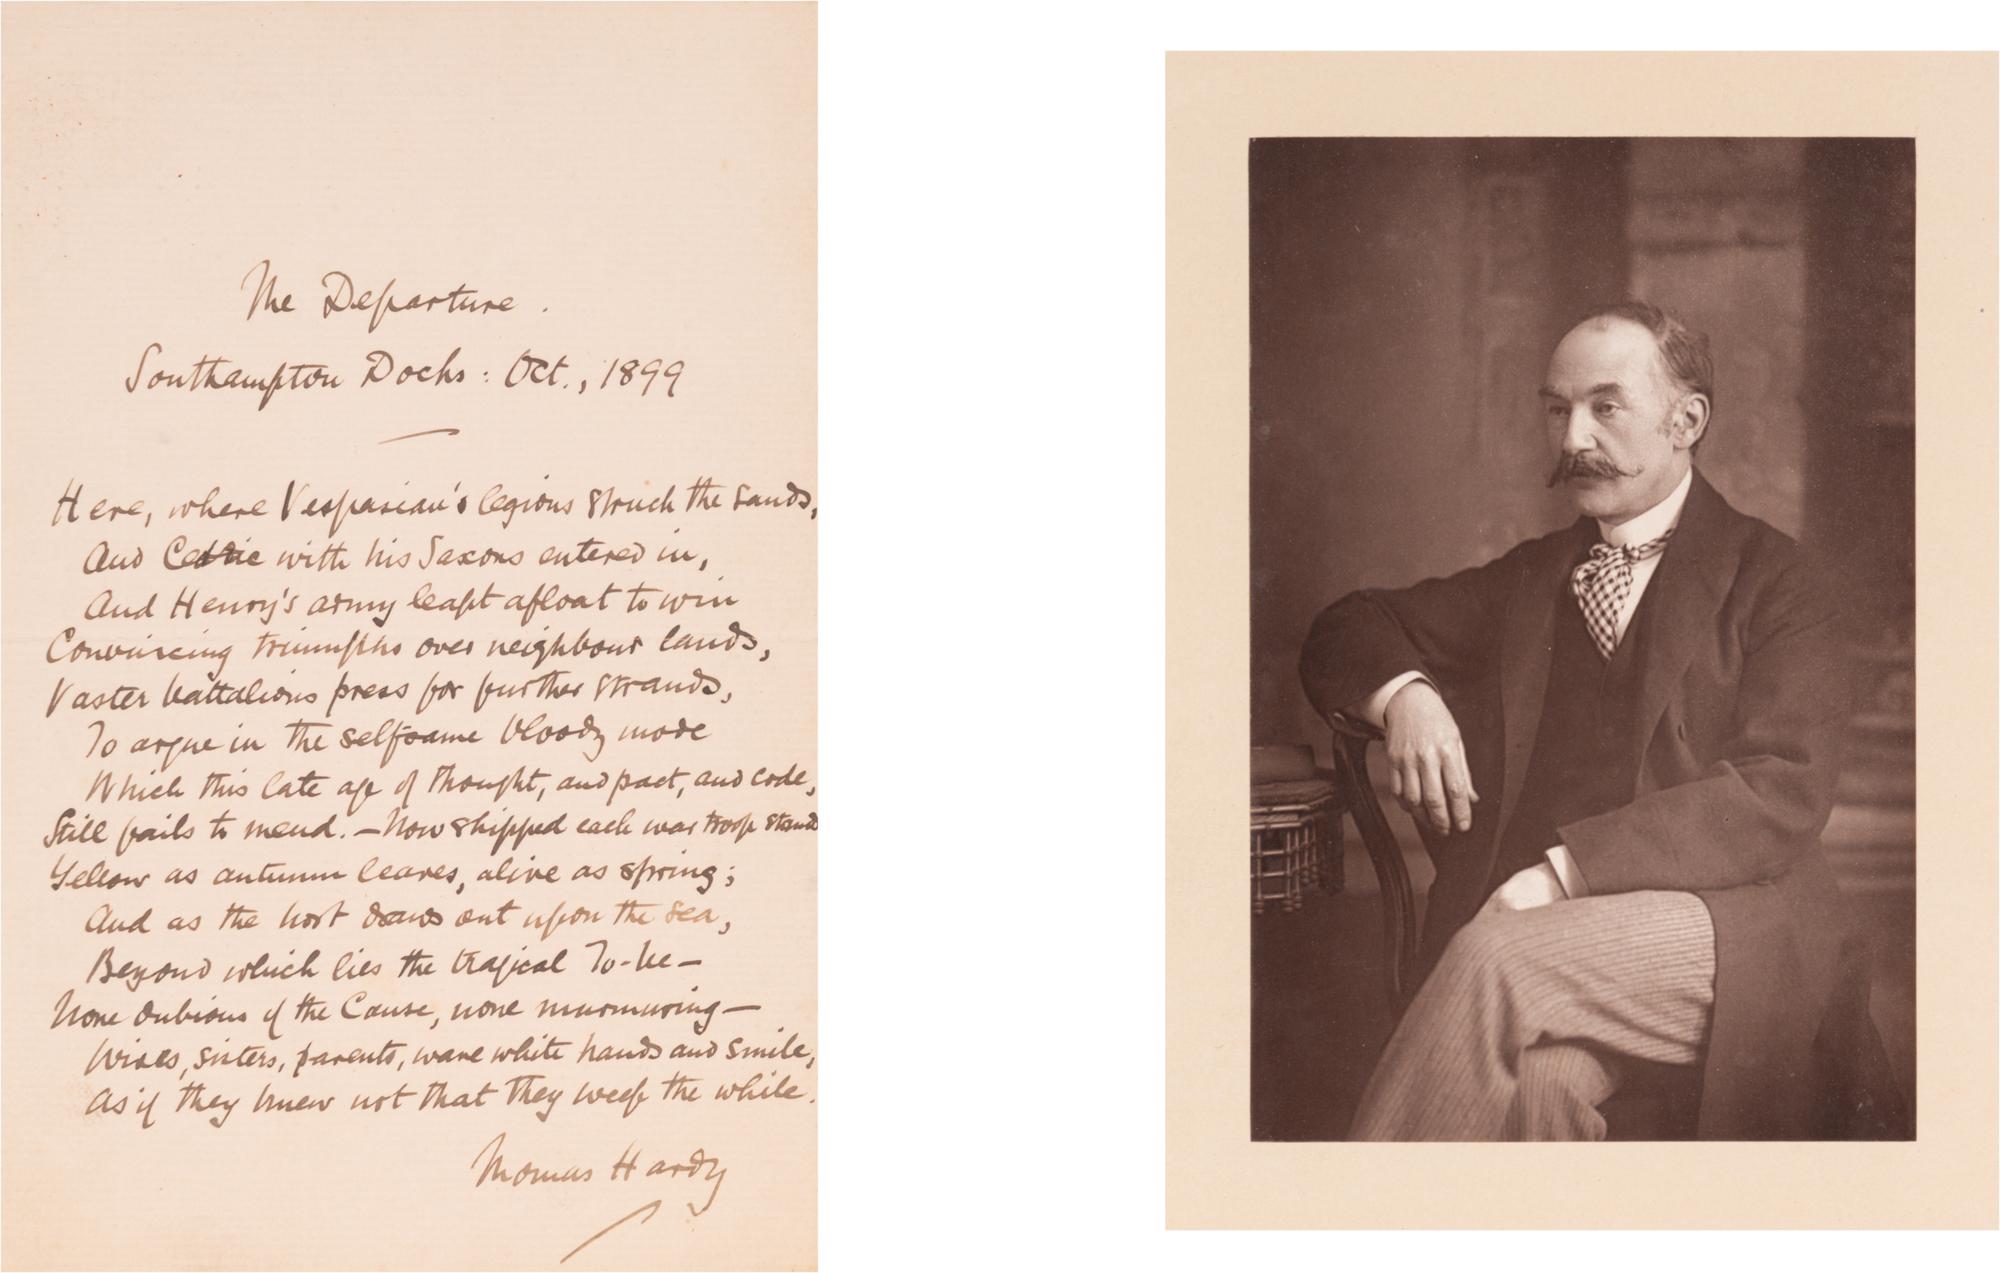 The Departure.
Southampton Docks: Oct., 1899
Here, where Vespasian's legions struck the sands,
And Cerdic with his Saxons entered in,
And Henry's army leapt afloat to win
Convincing triumphs over neighbour lands,
Vaster battalions press for further strands,
To argue in the selfsame bloody mode
Which this late age of thought, and pact, and code,
Still fails to mend. — Now shipped each war troop stands
Yellow as autumn leaves, alive as spring;
And as the host draws out upon the sea,
Beyond which lies the tragical To-be —
None dubious of the Cause, none murmuring —
Wives, sisters, parents, wave white hands and smile,
As if they knew not that they weep the while.
Thomas Hardy